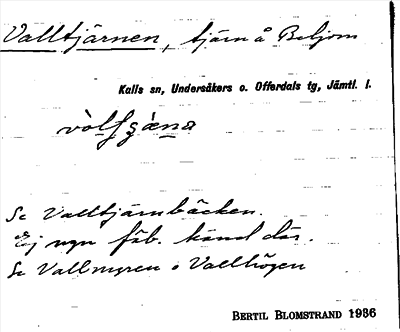 Valltjärnen, tjärn å Beljom
Kalls sn, Undersåkers o. Offerdals tg, Jämtl. l.
Se Valltjärnbäcken.
Ej ngn fäb. känd där.
Se Vallmyren o Vallhögen
BERTIL BLOMSTRAND 1936